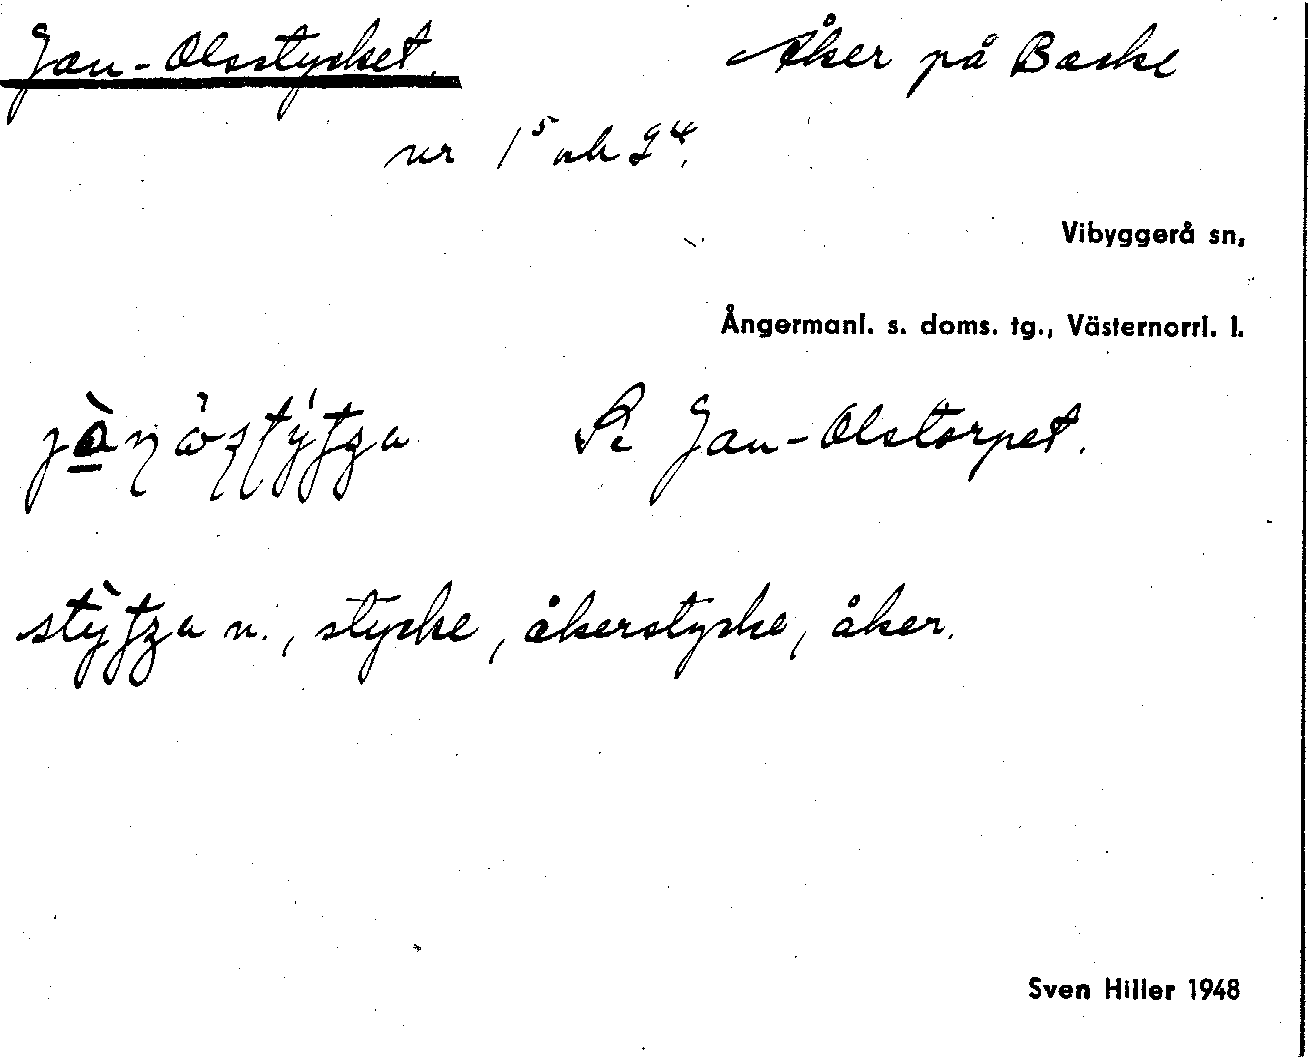 Jan-Olsstycket. Åker på Bäcke
nr 1⁵ och 2⁴.
Vibyggerå sn,
Ångermanl. s. doms. tg., Västernorrl. l.
Se Jan-Olstorpet.
n., stycke, åkerstycke, åker.
Sven Hiller 1948